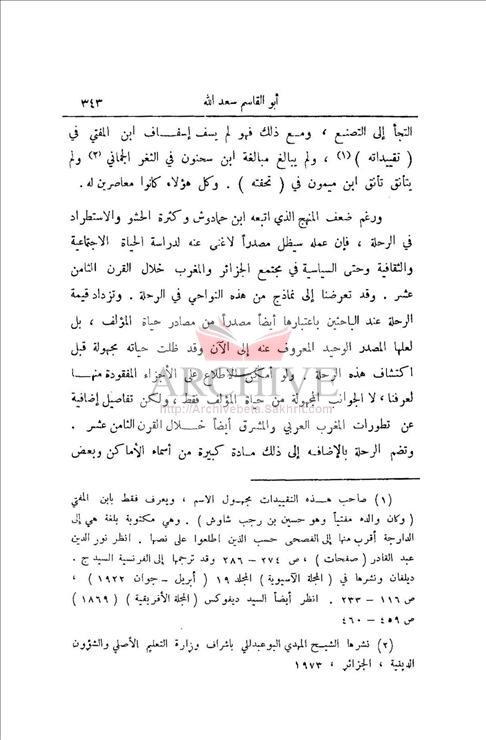 أبو القاسم سعد الله
٣٤٣
التجأ إلى التصنع ، ومع ذلك فهو لم يسف إسفاف ابن المفتي في
( تقييداته ) (١) ، ولم يبالغ مبالغة ابن سحنون في الثغر الجماني (٢) ولم
يتأنق تأنق ابن ميمون في ( تحفته ) . وكل هؤلاء كانوا معاصرين له .
ورغم ضعف المنهج الذي اتبعه ابن حمادوش وكثرة الحشو والاستطراد
في الرحلة ، فإن عمله سيظل مصدراً لاغنى عنه لدراسة الحياة الاجتماعية
والثقافية وحتى السياسية في مجتمع الجزائر والمغرب خلال القرن الثامن
عشر . وقد تعرضنا إلى نماذج من هذه النواحي في الرحلة . وتزداد قيمة
الرحلة عند الباحثين باعتبارها أيضاً مصدراً من مصادر حياة المؤلف ، بل
لعلها المصدر الوحيد المعروف عنه إلى الآن وقد ظلت حياته مجهولة قبل
اكتشاف هذه الرحلة . ولو أمكن الاطلاع على الأجزاء المفقودة منها
لعرفنا ، لا الجوانب المجهولة من حياة المؤلف فقط ، ولكن تفاصيل إضافية
عن تطورات المغرب العربي والمشرق أيضاً خلال القرن الثامن عشر .
وتضم الرحلة بالإضافه إلى ذلك مادة كبيرة من أسماء الأماكن وبعض
ARCHIVE
http://Archivebeta.Sakhrit.com
(١) صاحب هذه التقييدات مجهول الاسم ، ويعرف فقط بابن المفتي
( وكان والده مفتياً وهو حسين بن رجب شاوش ) . وهي مكتوبة بلغة هي إلى
الدارجة أقرب منها إلى الفصحى حسب الذين اطلعوا على نصها . انظر نور الدين
عبد القادر ( صفحات ) ، ص ٢٧٤ – ٢٨٦ وقد ترجمها إلى الفرنسية السيد ج .
ديلفان ونشرها في ( المجلة الآسيوية ) المجلد ١٩ ( أبريل – جوان ١٩٢٢ ) ،
ص ١١٦ – ٢٣٣ . انظر أيضاً السيد ديفوكس ( المجلة الأفريقية ) ( ١٨٦٩ )
ص ٤٥٩ – ٤٦٠
(٢) نشرها الشيخ المهدي البوعبدلي باشراف وزارة التعليم الأصلي والشؤون
الدينية ، الجزائر ، ١٩٧٣